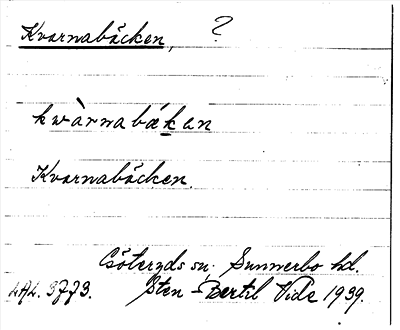 Kvarnabäcken, ?
kwàrnabákan
Kvarnabäcken.
Göteryds sn; Sunnerbo hd.
LAL. 3773. Sten-Bertil Vide 1939.